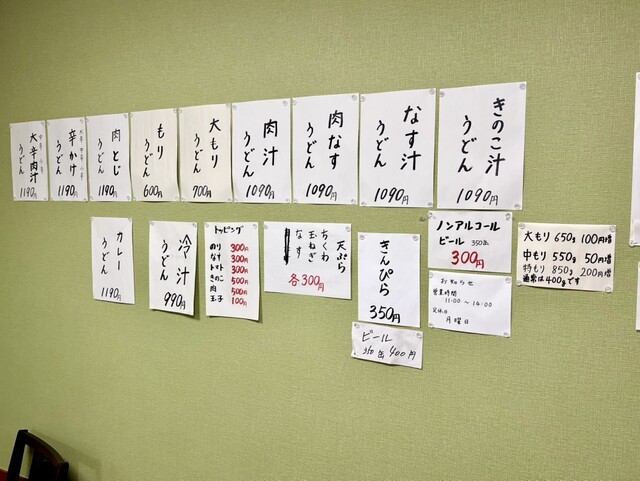 きのこ汁
うどん
1090円
なす汁
うどん
1090円
肉なす
うどん
1090円
肉汁
うどん
1090円
大もり
うどん
700円
もり
うどん
600円
肉とじ
うどん
1190円
辛かけ
うどん
1190円
大辛肉汁
うどん
1190円
大もり 650g 100円増
中もり 550g 50円増
特もり 850g 200円増
通常は400gです
ノンアルコール
ビール 350缶
300円
お知らせ
営業時間
11:00~14:00
定休日
月曜日
きんぴら
350円
ビール
350缶 400円
天ぷら
ちくわ
玉ねぎ
なす
各300円
トッピング
のり 300円
なす 300円
トマト 300円
きのこ 500円
肉 500円
玉子 100円
冷汁
うどん
990円
カレー
うどん
1190円